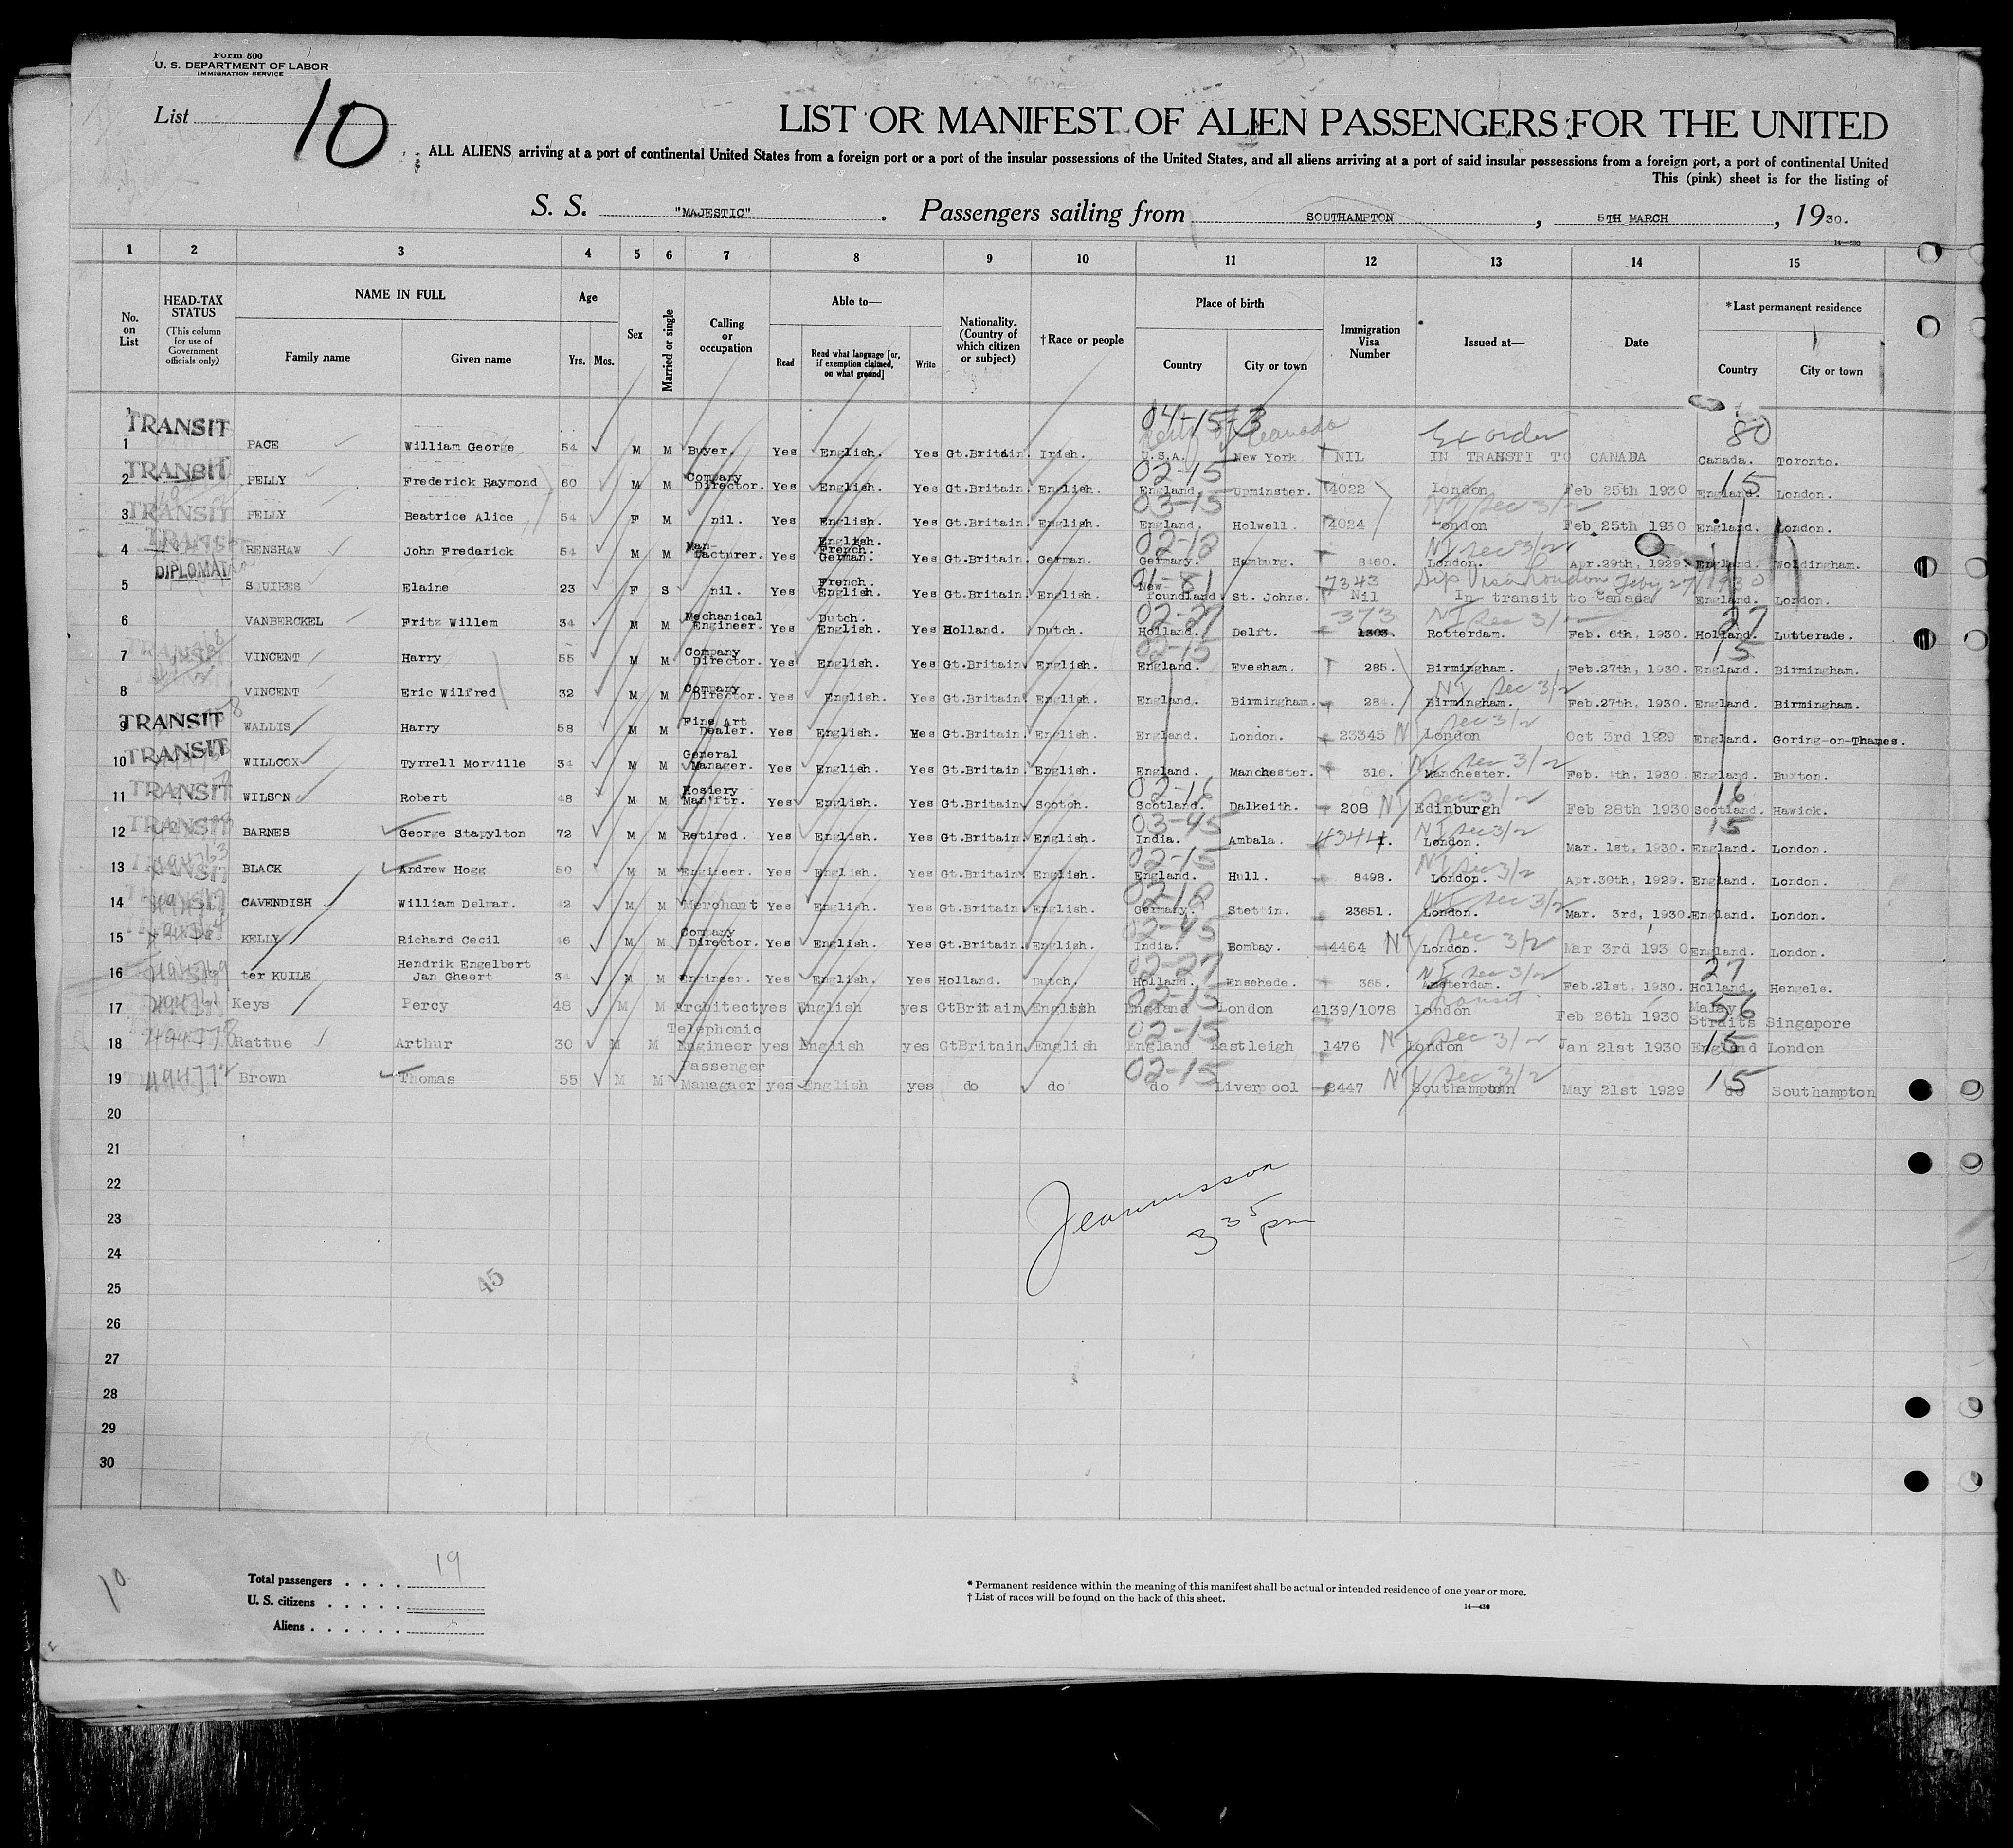 Form 500
U. S. DEPARTMENT OF LABOR
IMMIGRATION SERVICE
List 10
LIST OR MANIFEST OF ALIEN PASSENGERS FOR THE UNITED
ALL ALIENS arriving at a port of continental United States from a foreign port or a port of the insular possessions of the United States, and all aliens arriving at a port of said insular possessions from a foreign port, a port of continental United
This (pink) sheet is for the listing of
S. S. "MAJESTIC" . Passengers sailing from SOUTHAMPTON , 5TH MARCH , 1930.
14—430
1 2 3 4 5 6 7 8 9 10 11 12 13 14 15
No. on List
HEAD-TAX STATUS (This column for use of Government officials only)
NAME IN FULL
Family name Given name
Age
Yrs. Mos.
Sex
Married or single
Calling or occupation
Able to—
Read
Read what language [or, if exemption claimed, on what ground]
Write
Nationality. (Country of which citizen or subject)
†Race or people
Place of birth
Country City or town
Immigration Visa Number
Issued at—
Date
*Last permanent residence
Country City or town
04-15-3 Canada Ex order 80
TRANSIT
1 PACE William George 54 M M Buyer. Yes English. Yes Gt.Britain. Irish. U.S.A. New York NIL IN TRANSTI TO CANADA Canada. Toronto.
TRANSIT 02-15 15
2 PELLY Frederick Raymond 60 M M Company Director. Yes English. Yes Gt.Britain. English. England. Upminster. 4022 London Feb 25th 1930 England. London.
TRANSIT 03-15 NI Sec 3/2
3 PELLY Beatrice Alice 54 F M nil. Yes English. Yes Gt.Britain. English. England. Holwell. 4024 London Feb 25th 1930 England. London.
TRANSIT 02-18 NI Sec 3/2
4 RENSHAW John Frederick 54 M M Man- facturer. Yes English. French. German. Yes Gt.Britain. German. Germany. Hamburg. 8460. London. Apr.29th, 1929. England. Woldingham.
DIPLOMAT 91-81 7343 Dip Visa London Feby 27/1930
5 SQUIRES Elaine 23 F S nil. Yes French. English. Yes Gt.Britain. English. New foundland St. Johns. Nil In transit to Canada England. London.
02-27 373 NI Sec 3/2 27
6 VANBERCKEL Fritz Willem 34 M M Mechanical Engineer. Yes Dutch. English. Yes Holland. Dutch. Holland. Delft. 1303 Rotterdam. Feb. 6th, 1930. Holland. Lutterade.
TRANSIT 02-15 15
7 VINCENT Harry 55 M M Company Director. Yes English. Yes Gt.Britain. English. England. Evesham. 285. Birmingham. Feb.27th, 1930. England. Birmingham.
NI Sec 3/2
8 VINCENT Eric Wilfred 32 M M Company Director. Yes English. Yes Gt.Britain. English. England. Birmingham. 284. Birmingham. Feb.27th, 1930. England. Birmingham.
TRANSIT
9 WALLIS Harry 58 M M Fine Art Dealer. Yes English. Yes Gt.Britain. English. England. London. 23345 NI Sec 3/2 London Oct 3rd 1929 England. Goring-on-Thames.
TRANSIT NI Sec 3/2
10 WILLCOX Tyrrell Morville 34 M M General Manager. Yes English. Yes Gt.Britain. English. England. Manchester. 316. Manchester. Feb. 4th, 1930. England. Buxton.
TRANSIT 02-16 16
11 WILSON Robert 48 M M Hosiery Man'ftr. Yes English. Yes Gt.Britain. Scotch. Scotland. Dalkeith. 208 NI Sec 3/2 Edinburgh Feb 28th 1930 Scotland. Hawick.
TRANSIT 03-45 NI Sec 3/2 15
12 BARNES George Stapylton 72 M M Retired. Yes English. Yes Gt.Britain. English. India. Ambala. 4344. London. Mar. 1st, 1930. England. London.
TRANSIT 02-15 NI Sec 3/2
13 BLACK Andrew Hogg 50 M M Engineer. Yes English. Yes Gt.Britain. English. England. Hull. 8498. London. Apr.30th, 1929. England. London.
TRANSIT 02-18 NI Sec 3/2
14 CAVENDISH William Delmar. 42 M M Merchant Yes English. Yes Gt.Britain. English. Germany. Stettin. 23651. London. Mar. 3rd, 1930. England. London.
02-45
15 KELLY Richard Cecil 46 M M Company Director. Yes English. Yes Gt.Britain. English. India. Bombay. 4464 NI Sec 3/2 London. Mar 3rd 1930 England. London.
02-27 NI Sec 3/2 27
16 ter KUILE Hendrik Engelbert Jan Gheert 34 M M Engineer. Yes English. Yes Holland. Dutch. Holland. Enschede. 365. Amsterdam. Feb.21st, 1930. Holland. Hengels.
02-15 Transit 56
17 Keys Percy 48 M M Architect yes English yes GtBritain English England London 4139/1078 London Feb 26th 1930 Malay Straits Singapore
494778 02-15 15
18 Rattue Arthur 30 M M Telephonic Engineer yes English yes GtBritain English England Eastleigh 1476 NI Sec 3/2 London Jan 21st 1930 England London
494772 02-15 15
19 Brown Thomas 55 M M Passenger Managaer yes English yes do do do Liverpool 2447 NI Sec 3/2 Southampton May 21st 1929 do Southampton
20
21
22
23
24
25
26
27
28
29
30
3 35 pm
45
10
Total passengers . . . . 19
U. S. citizens . . . . .
Aliens . . . . . .
* Permanent residence within the meaning of this manifest shall be actual or intended residence of one year or more.
† List of races will be found on the back of this sheet.
14—430